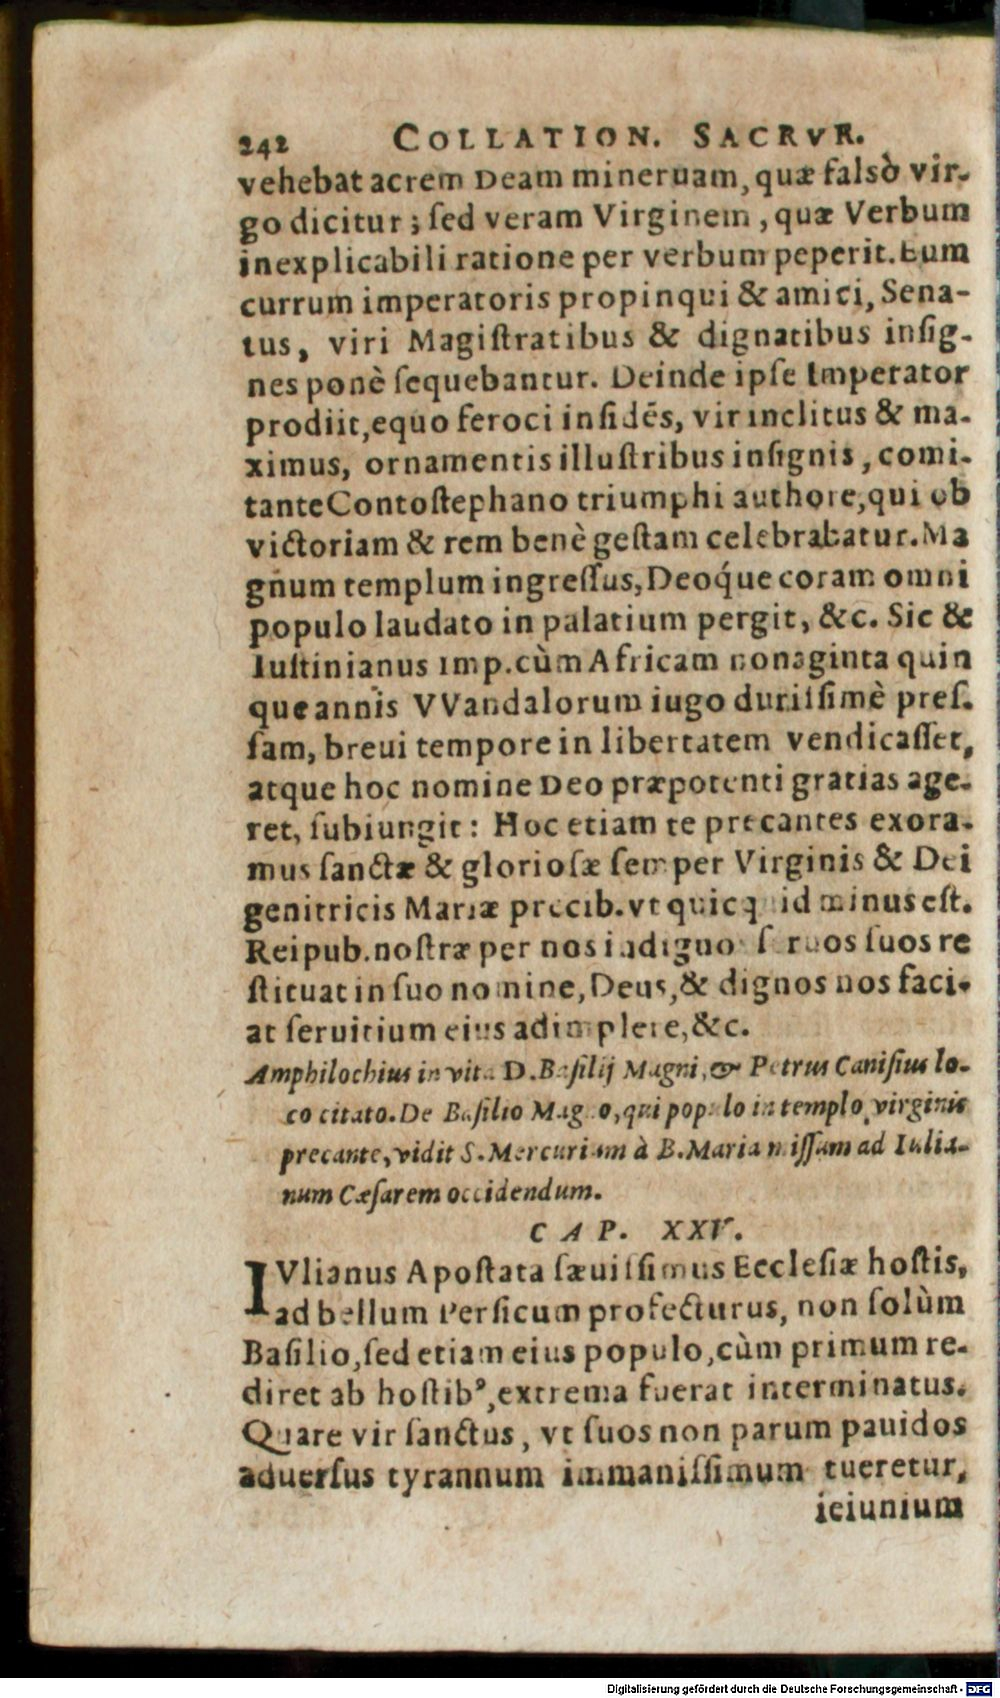 242 COLLATION. SACRVR.
vehebat acrem Deam mineruam, quæ falsò vir-
go dicitur; ſed veram Virginem, quæ Verbum
inexplicabili ratione per verbum peperit. Eum
currum imperatoris propinqui & amici, Sena-
tus, viri Magiſtratibus & dignatibus inſig-
nes ponè ſequebantur. Deinde ipſe Imperator
prodiit, equo feroci inſidẽs, vir inclitus & ma-
ximus, ornamentis illuſtribus inſignis, comi-
tante Contoſtephano triumphi authore, qui ob
victoriam & rem benè geſtam celebrabatur. Ma
gnum templum ingreſſus, Deoq́ue coram omni
populo laudato in palatium pergit, &c. Sic &
Iuſtinianus Imp. cùm Africam nonaginta quin
que annis VVandalorum iugo duriſſimè preſ-
ſam, breui tempore in libertatem vendicaſſet,
atque hoc nomine Deo præpotenti gratias age-
ret, ſubiungit: Hoc etiam te precantes exora-
mus ſanctæ & glorioſæ ſemper Virginis & Dei
genitricis Mariæ precib. vt quicquid minus eſt.
Reipub. noſtræ per nos indignos ſeruos ſuos re
ſtituat in ſuo nomine, Deus, & dignos nos faci-
at ſeruitium eius adimplere, &c.
Amphilochius in vita D. Baſilij Magni, & Petrus Caniſius lo-
co citato. De Baſilio Magno, qui populo in templo virginis
precante, vidit S. Mercurium à B. Maria miſſum ad Iulia-
num Cæſarem occidendum.
CAP. XXV.
IVlianus Apoſtata ſæuiſſimus Eccleſiæ hoſtis,
ad bellum Perſicum profecturus, non ſolùm
Baſilio, ſed etiam eius populo, cùm primum re-
diret ab hoſtibꝰ, extrema fuerat interminatus.
Quare vir ſanctus, vt ſuos non parum pauidos
aduerſus tyrannum immaniſſimum tueretur,
ieiunium
Digitalisierung gefördert durch die Deutsche Forschungsgemeinschaft - DFG